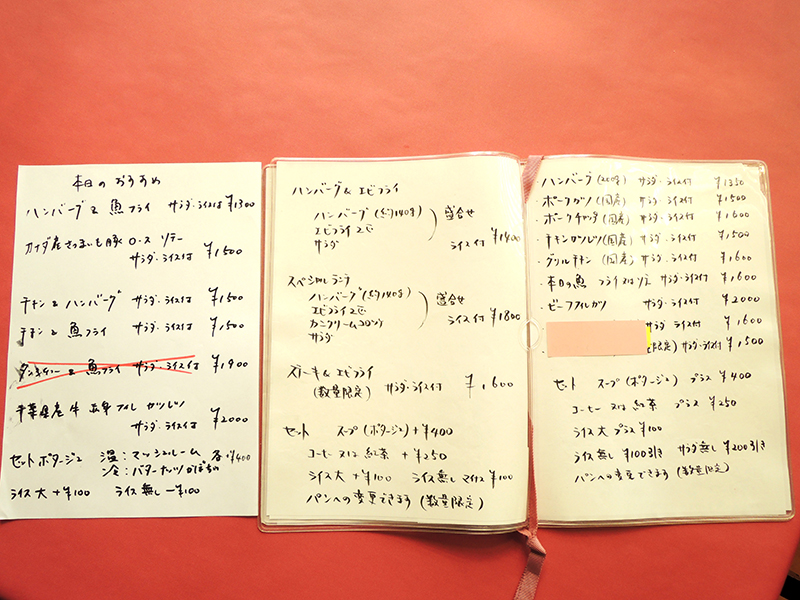 本日のおすすめ
ハンバーグ & 魚フライ サラダ・ライス付 ¥1300
産さつまいも豚 ロース ソテー
サラダ・ライス付 ¥1500
チキン & ハンバーグ サラダ・ライス付 ¥1500
チキン & 魚フライ サラダ・ライス付 ¥1500
& 魚フライ サラダ・ライス付 ¥1900
千葉県産牛 フィレ カツレツ
サラダ・ライス付 ¥2000
セット ポタージュ 温:マッシュルーム 各¥400
冷:バターナッツかぼちゃ
ライス大 +¥100 ライス無し -¥100
ハンバーグ & エビフライ
ハンバーグ(約140g)
エビフライ2ヶ 盛合せ
サラダ ライス付 ¥1400
スペシャルランチ
ハンバーグ(約140g)
エビフライ2ヶ 盛合せ
カニクリームコロッケ ライス付 ¥1800
サラダ
ステーキ & エビフライ
(数量限定) サラダ・ライス付 ¥1,600
セット スープ(ポタージュ)+¥400
コーヒー 又は 紅茶 +¥250
ライス大 +¥100 ライス無し マイナス¥100
パンへの変更できます(数量限定)
ハンバーグ(200g) サラダ・ライス付 ¥1350
・ポークカツ(国産) サラダ・ライス付 ¥1500
・ポークチャップ(国産) サラダ・ライス付 ¥1600
・チキンカツレツ(国産) サラダ・ライス付 ¥1500
・グリルチキン(国産) サラダ・ライス付 ¥1600
・本日の魚 フライ又はソテー サラダ・ライス付 ¥1600
・ビーフヒレカツ サラダ・ライス付 ¥2000
サラダ・ライス付 ¥1600
限定) サラダ・ライス付 ¥1,500
セット スープ(ポタージュ) プラス ¥400
コーヒー 又は 紅茶 プラス ¥250
ライス大 プラス ¥100
ライス無し ¥100引き サラダ無し ¥200引き
パンへの変更できます(数量限定)